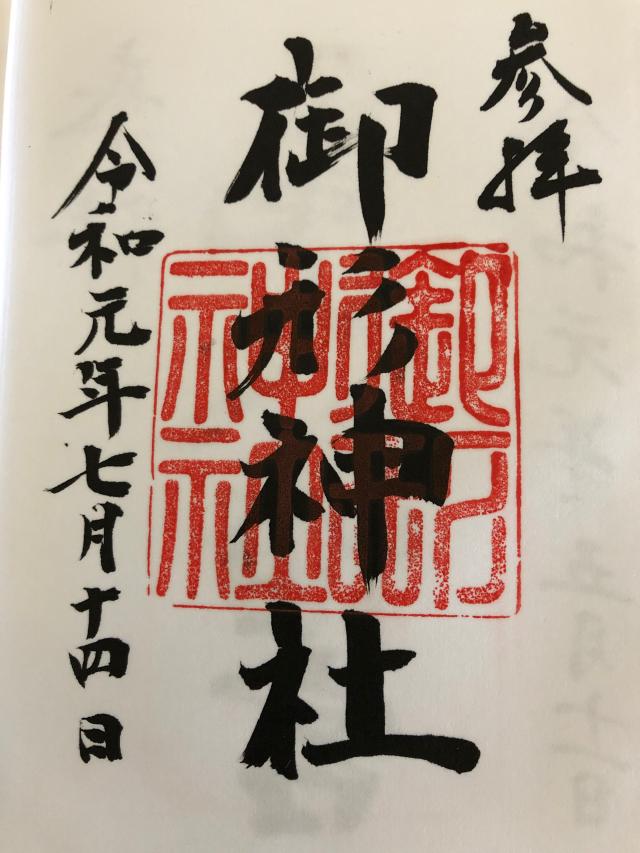 参拝
御形神社
令和元年七月十四日
御
神社